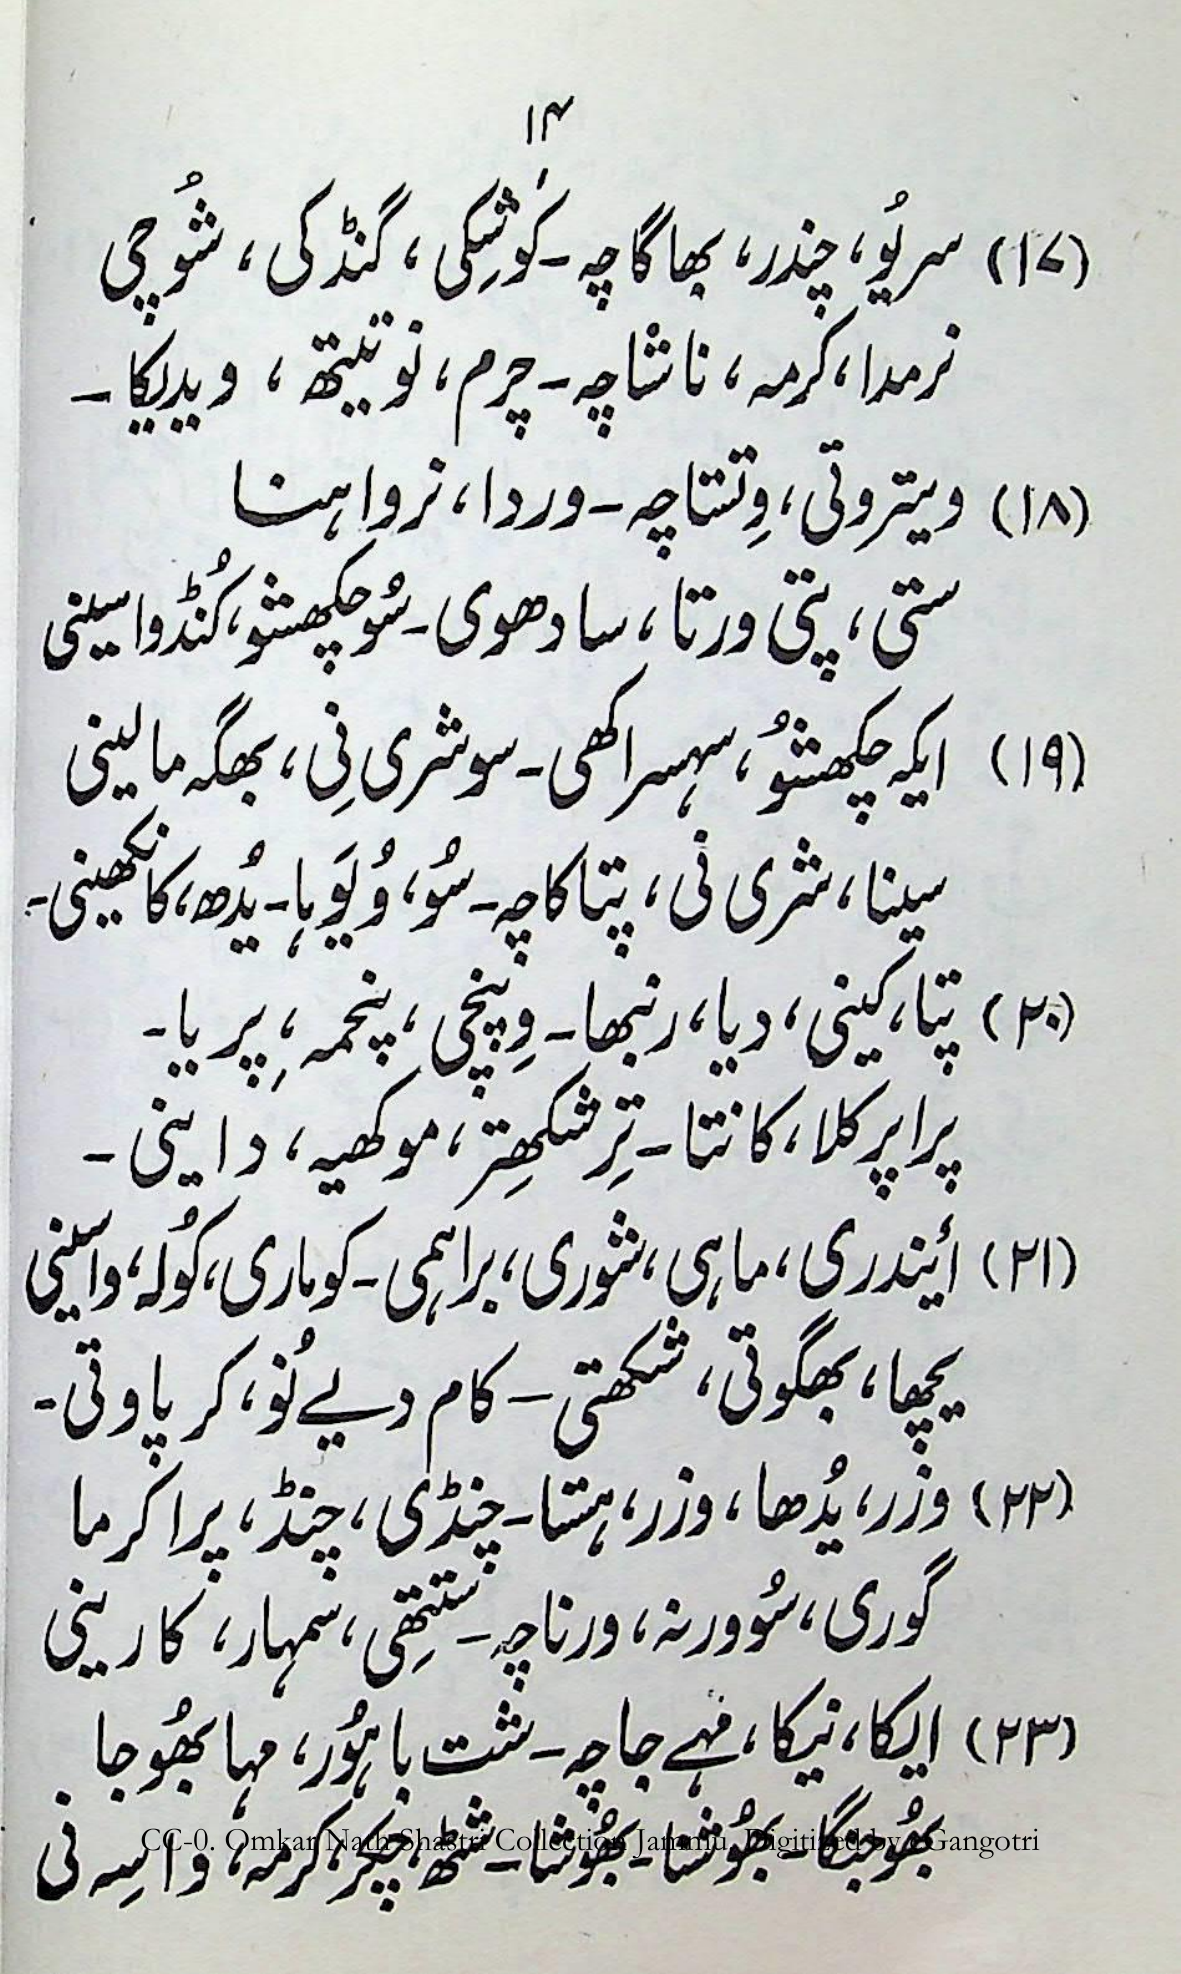 ۱۴
(۱۷) سریُو، چندر، بھاگاچہ۔ کوشِکی، گنڈکی، شُوچی
نرمدا، کرمہ، ناشاچہ۔ چرم، نو تیتھ، ویدیکا۔
(۱۸) ویتروتی، وِتستاچہ۔ وردا، نرواہنا
ستی، پتی ورتا، سادھوی۔ سُوچکھشو، کُنڈواسینی
(۱۹) ایکہ چکھشوُ، سہسراکھی۔ سوشری نِی، بھگہ مالینی
سینا، شری نی، پتاکاچہ۔ سُو، وُیَوہا۔ یُدھ، کانکھینی۔
(۲۰) پتا، کینی، دیا، رنبھا۔ وِپنچی، پنچمہ، پِریا۔
پراپر کلا، کانتا۔ تِرشکھِتر، موکھیہ، داینی۔
(۲۱) اَیندری، ماہی، شوری، براہمی۔ کوماری، کُولہ، واسینی
یچھا، بھگوتی، شکھتی۔ کام دیے نُو، کرپاوتی۔
(۲۲) وزر، یُدھا، وزر، ہستا۔ چنڈی، چنڈ، پراکرما
گوری، سُوورنہ، ورناچہ۔ ستتھِی، سمہار، کارینی
(۲۳) ایکا، نیکا، مہے جاچہ۔ شت باہُور، مہا بھُوجا
بھُوجنگا۔ بھُوشا۔ بھُوشا۔ شٹھ، چکر، کرمہ، واسِہ نی
CC-0. Omkar Nath Shastri Collection Jammu. Digitized by eGangotri